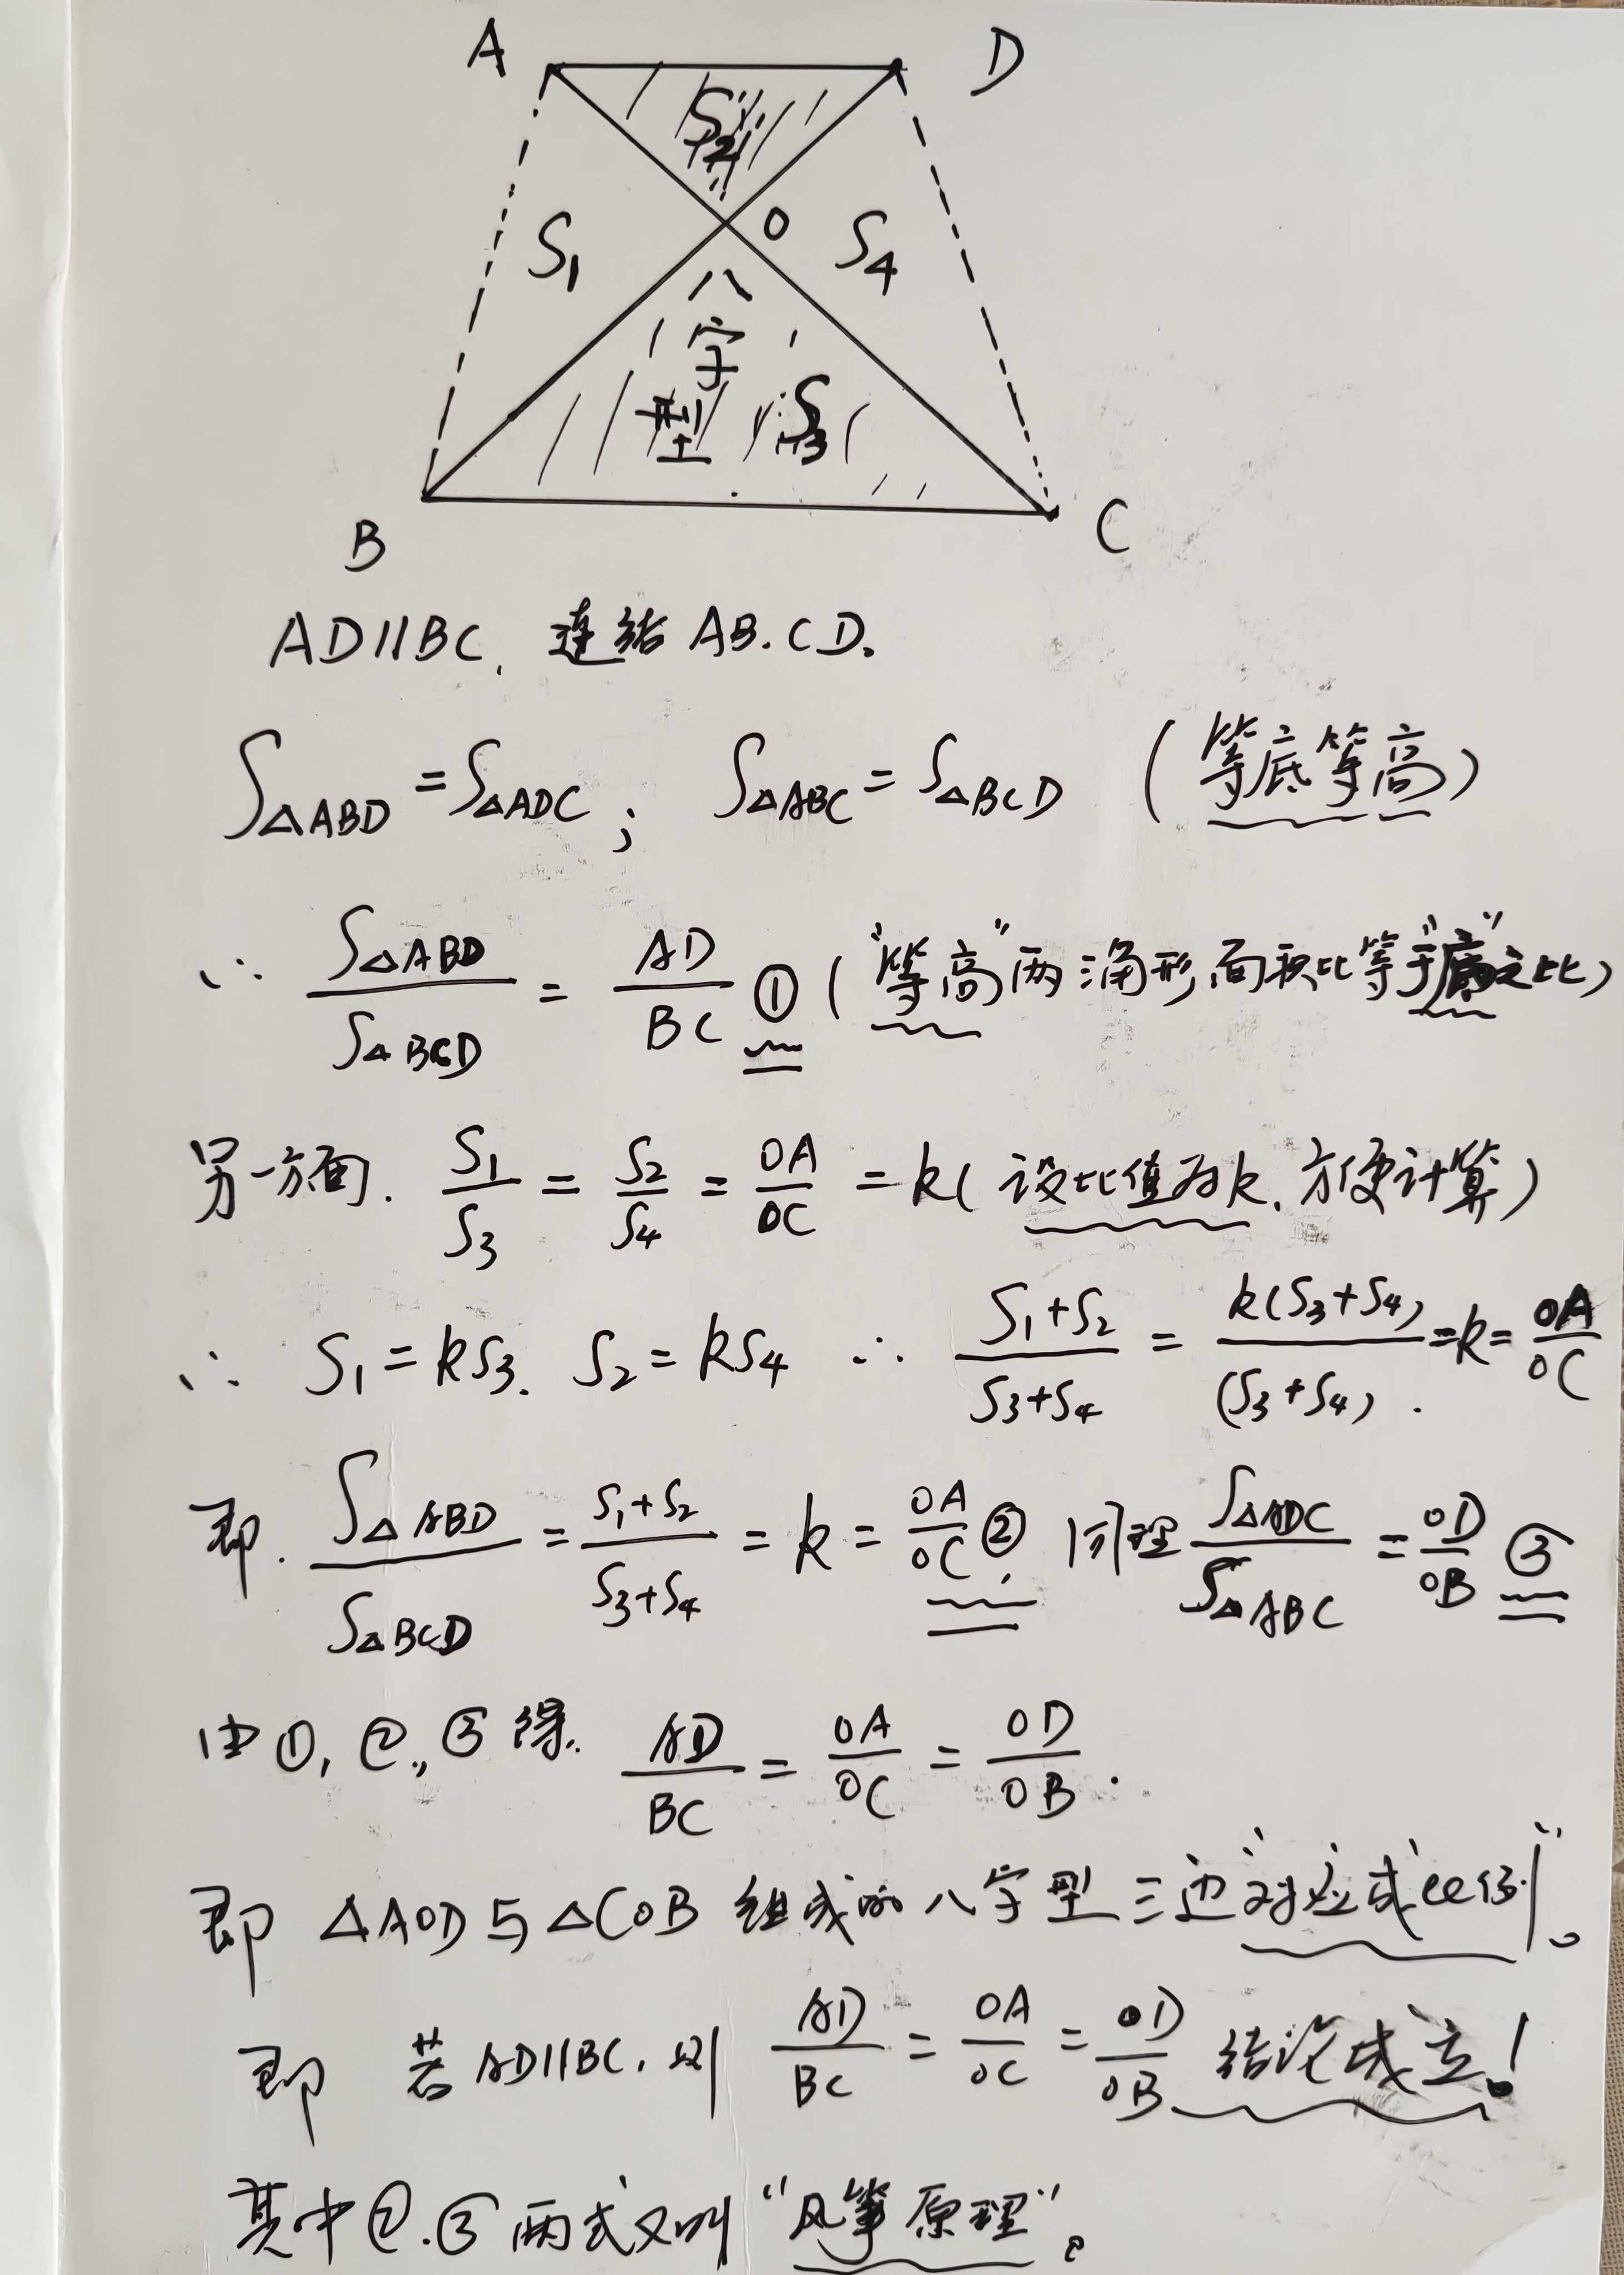 A D
S2
S1 O S4
八
字
型 S3
B C
AD∥BC, 连结 AB.CD.
S△ABD = S△ADC ; S△ABC = S△BCD (等底等高)
∴ S△ABD/S△BCD = AD/BC ① ("等高"两三角形面积比等于"底"之比)
另一方面. S1/S3 = S2/S4 = OA/OC = k (设比值为k, 方便计算)
∴ S1 = kS3. S2 = kS4 ∴ (S1+S2)/(S3+S4) = k(S3+S4)/(S3+S4) = k = OA/OC
即. S△ABD/S△BCD = (S1+S2)/(S3+S4) = k = OA/OC ②, 同理 S△ADC/S△ABC = OD/OB ③
由①,②,③得. AD/BC = OA/OC = OD/OB.
即 △AOD与△COB 组成的八字型三边"对应成比例"。
即 若AD∥BC, 则 AD/BC = OA/OC = OD/OB 结论成立!
其中②.③两式又叫"风筝原理"。